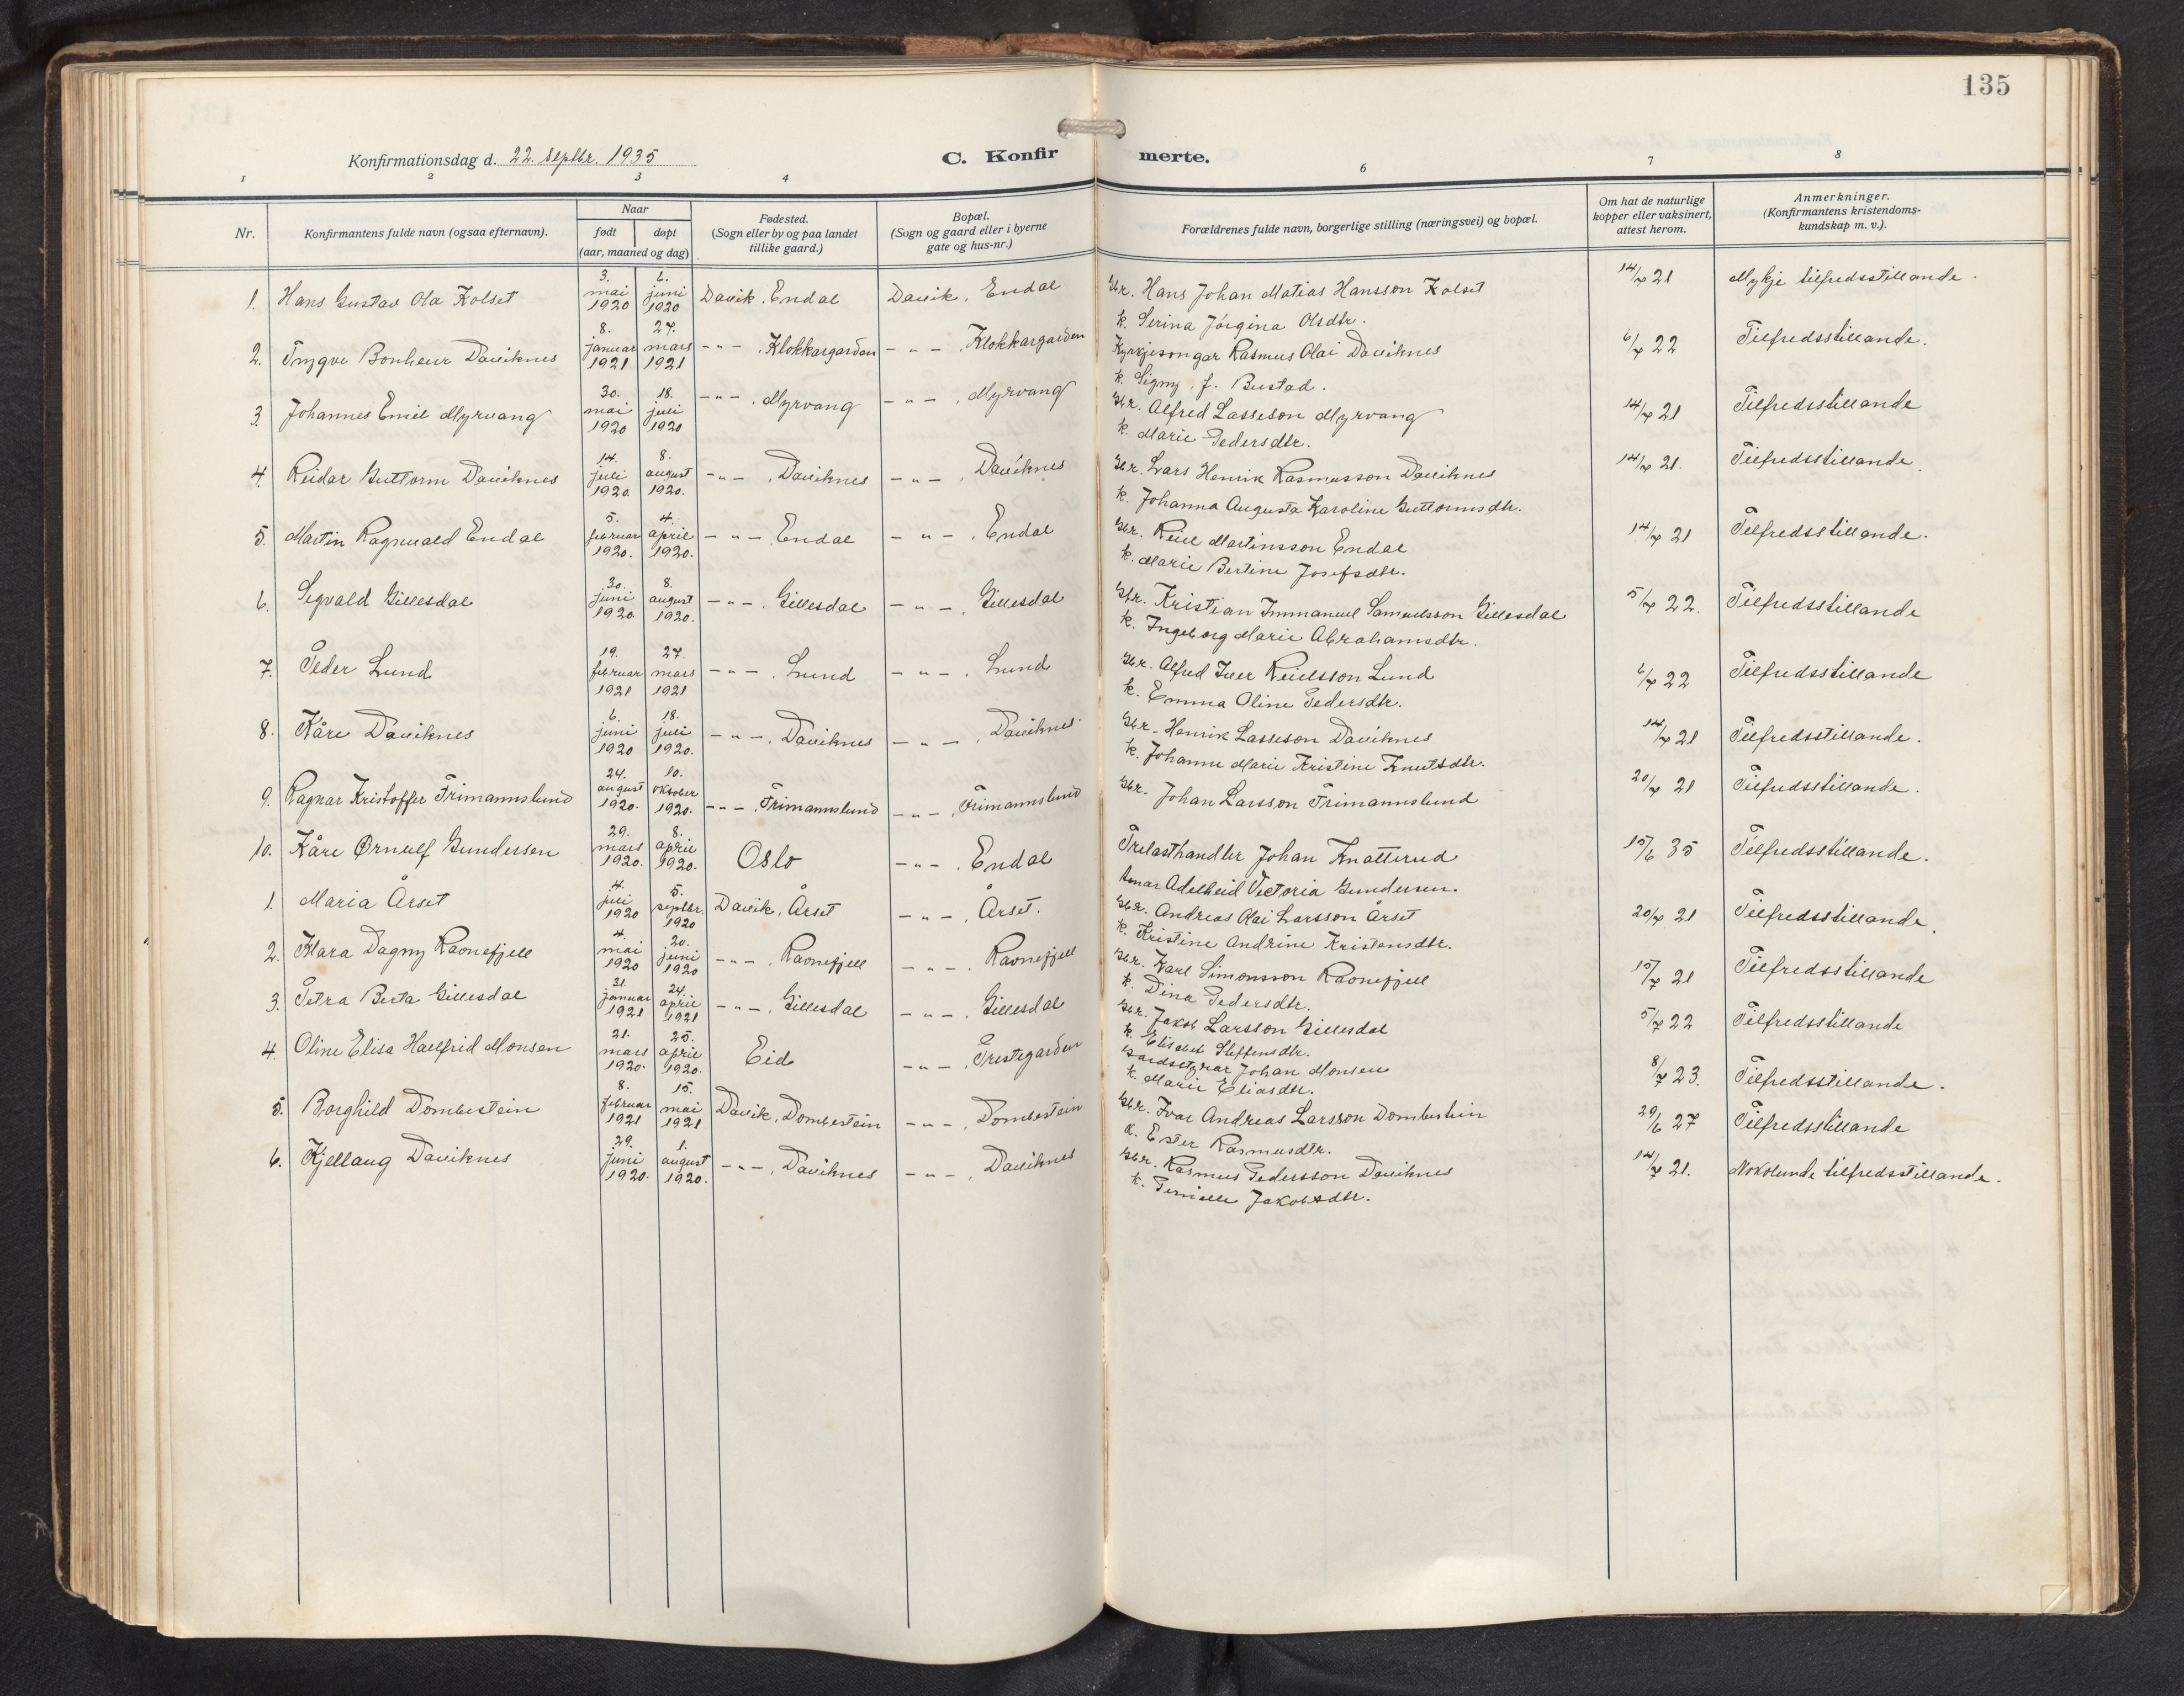 135
Konfirmationsdag d. 22. septbr. 1935
C. Konfirmerte.
1 2 3 4 6 7 8
Nr.
Konfirmantens fulde navn (ogsaa efternavn).
Naar
født døpt
(aar, maaned og dag)
Fødested.
(Sogn eller by og paa landet
tillike gaard.)
Bopæl.
(Sogn og gaard eller i byerne
gate og hus-nr.)
Forældrenes fulde navn, borgerlige stilling (næringsvei) og bopæl.
Om hat de naturlige
kopper eller vaksinert,
attest herom.
Anmerkninger.
(Konfirmantens kristendoms-
kundskap m. v.).
1. Hans Gustav Ola Kolset 3. mai 1920 6. juni 1920 Davik, Endal Davik, Endal Gbr. Hans Johan Matias Hansson Kolset 14/7 21 Mykje tilfredsstillande.
k. Serina Jørgina Olsdtr.
2. Trygve Bonheur Daviknes 8. januar 1921 27. mars 1921 - " - , Klokkargarden - " - , Klokkargarden Kyrkjesongar Rasmus Olai Daviknes 6/7 22 Tilfredsstillande.
k. Signy, f. Bustad.
3. Johannes Emil Myrvang 30. mai 1920 18. juli 1920 - " - , Myrvang - " - , Myrvang Gbr. Alfred Lasseson Myrvang 14/7 21 Tilfredsstillande
k. Marie Pedersdtr.
4. Reidar Guttorm Daviknes 14. juli 1920. 8. august 1920. - " - , Daviknes - " - , Daviknes Gbr. Lars Henrik Rasmusson Daviknes 14/7 21. Tilfredsstillande.
k. Johanna Augusta Karoline Guttormsdtr.
5. Martin Ragnvald Endal 5. februar 1920. 4. april 1920. - " - Endal - " - , Endal Gbr. Reiel Martinsson Endal 14/7 21 Tilfredsstillande.
k. Marie Bertine Josefsdtr.
6. Sigvald Gillesdal 30. juni 1920. 8. august 1920. - " - , Gillesdal - " - , Gillesdal Gbr. Kristian Immanuel Samuelsson Gillesdal 5/7 22. Tilfredsstillande
k. Ingeborg Marie Abrahamsdtr.
7. Peder Lund 19. februar 1921 27. mars 1921 - " - , Lund - " - , Lund Gbr. Alfred Iver Reielsson Lund 6/7 22 Tilfredsstillande
k. Emma Oline Pedersdtr.
8. Kåre Daviknes 6. juni 1920 18. juli 1920. - " - , Daviknes - " - , Daviknes Gbr. Henrik Lasseson Daviknes 14/7 21 Tilfredsstillande.
k. Johanne Marie Kristine Knutsdtr.
9. Ragnar Kristoffer Frimannslund 24. august 1920. 10. oktober 1920. - " - , Frimannslund - " - , Frimannslund Gbr. Johan Larsson Frimannslund 20/7 21 Tilfredsstillande.
10. Kåre Ørnulf Gundersen 29. mars 1920. 8. april 1920. Oslo - " - , Endal Trelasthandler Johan Knatterud 15/6 35 Tilfredsstillande.
Adelheid Victoria Gundersen.
1. Maria Årset 4. juli 1920 5. septbr. 1920 Davik, Årset - " - , Årset. Gbr. Andreas Olai Larsson Årset 20/7 21 Tilfredsstillande.
k. Kristine Andrine Kristensdtr.
2. Klara Dagny Ravnefjell 4. mai 1920 20. juni 1920 - " - , Ravnefjell - " - , Ravnefjell Gbr. Karl Simonsson Ravnefjell 15/7 21 Tilfredsstillande
k. Dina Pedersdtr.
3. Petra Berta Gillesdal 31. januar 1921 24. april 1921 - " - , Gillesdal - " - , Gillesdal Gbr. Jakob Larsson Gillesdal 5/7 22 Tilfredsstillande
k. Elisabet Steffensdtr.
4. Oline Elisa Hallfrid Monsen 21. mars 1920. 25. april 1920. Eid - " - , Prestegarden Gardsstyrar Johan Monsen 8/7 23. Tilfredsstillande.
k. Marie Eliasdtr.
5. Borghild Dombestein 8. februar 1921 15. mai 1921 Davik, Dombestein - " - , Dombestein Gbr. Ivar Andreas Larsson Dombestein 29/6 27 Tilfredsstillande
k. Ester Rasmusdtr.
6. Kjellaug Daviknes 29. juni 1920. 1. august 1920. - " - , Daviknes - " - , Daviknes Gbr. Rasmus Pedersson Daviknes 14/7 21. Nokolunde tilfredsstillande.
k. Pernille Jakobsdtr.